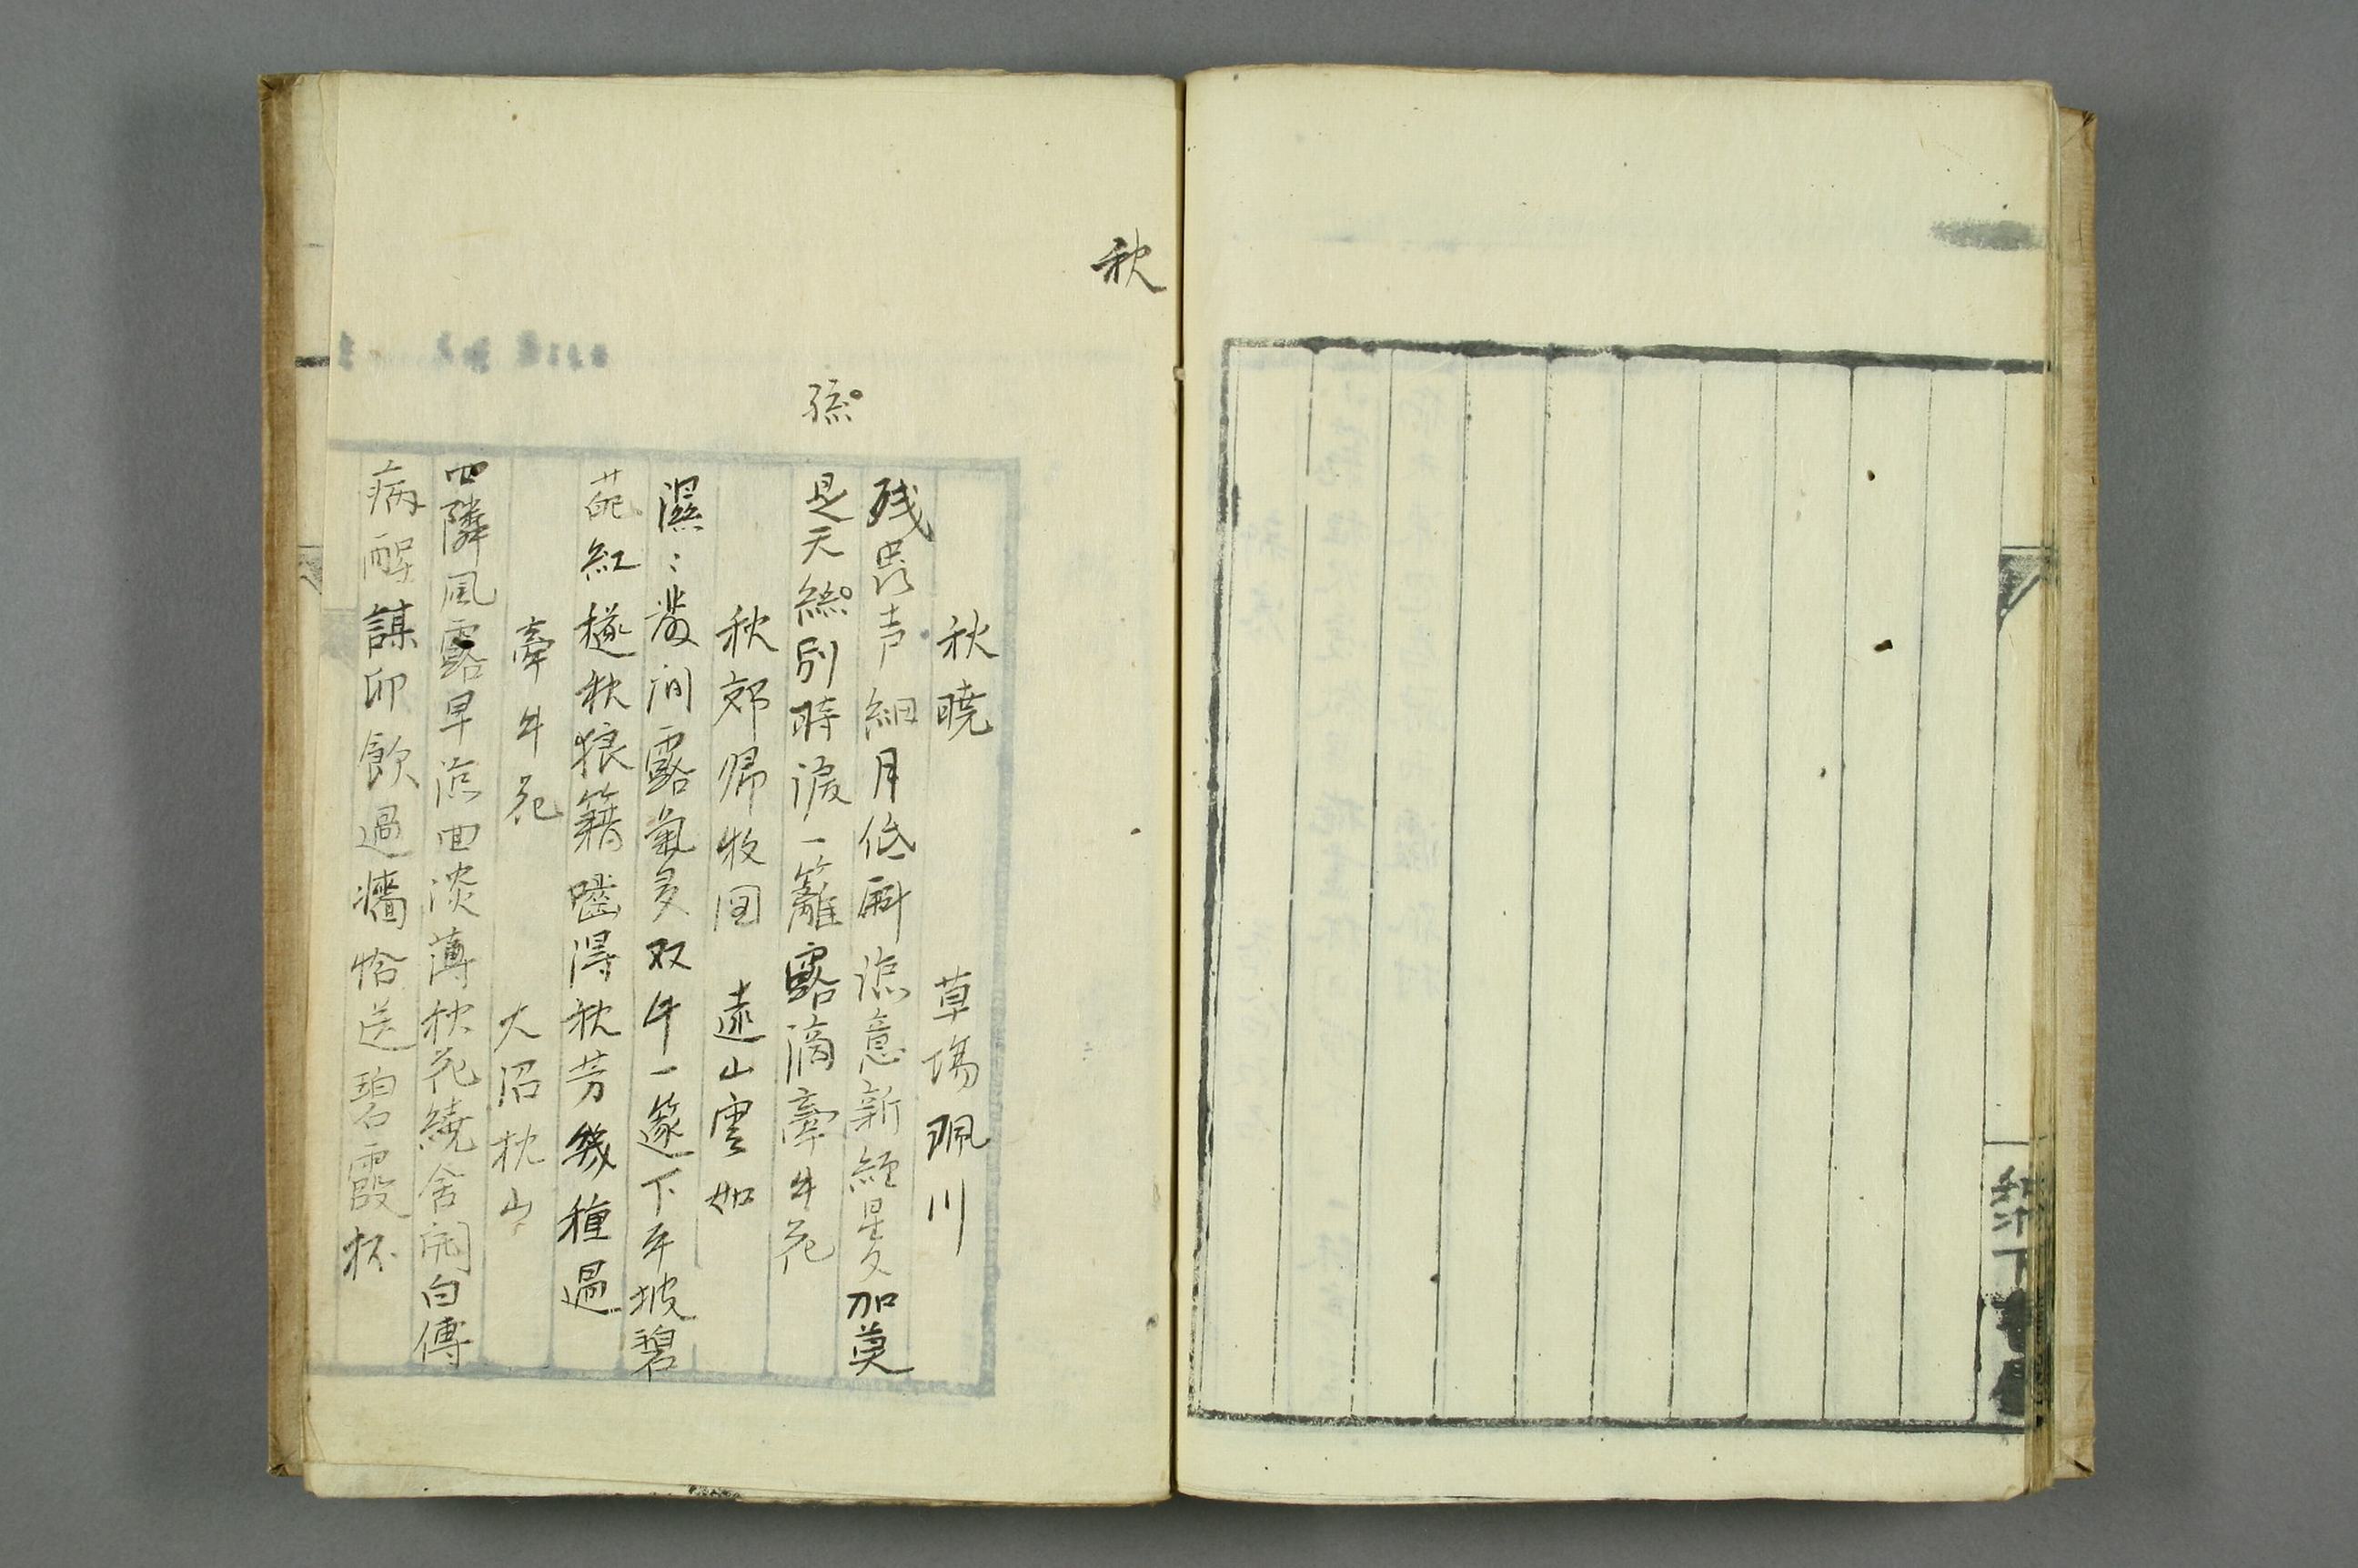 秋
秋曉 草場珮川
残蛩声細月低斜涼意新經星夕加莫
孫
是天絲別時涙一籬露滴牽牛花
秋郊帰牧図 遠山雲如
濕〻 間露氣多双牛一篴下平坡碧
葩紅穟秋狼籍囓得秋芳幾種過
牽牛花 大沼枕山
四隣風露早涼回淡薄秋花繞舍開白傅
病 謀卯飲過牆恰送碧霞杯